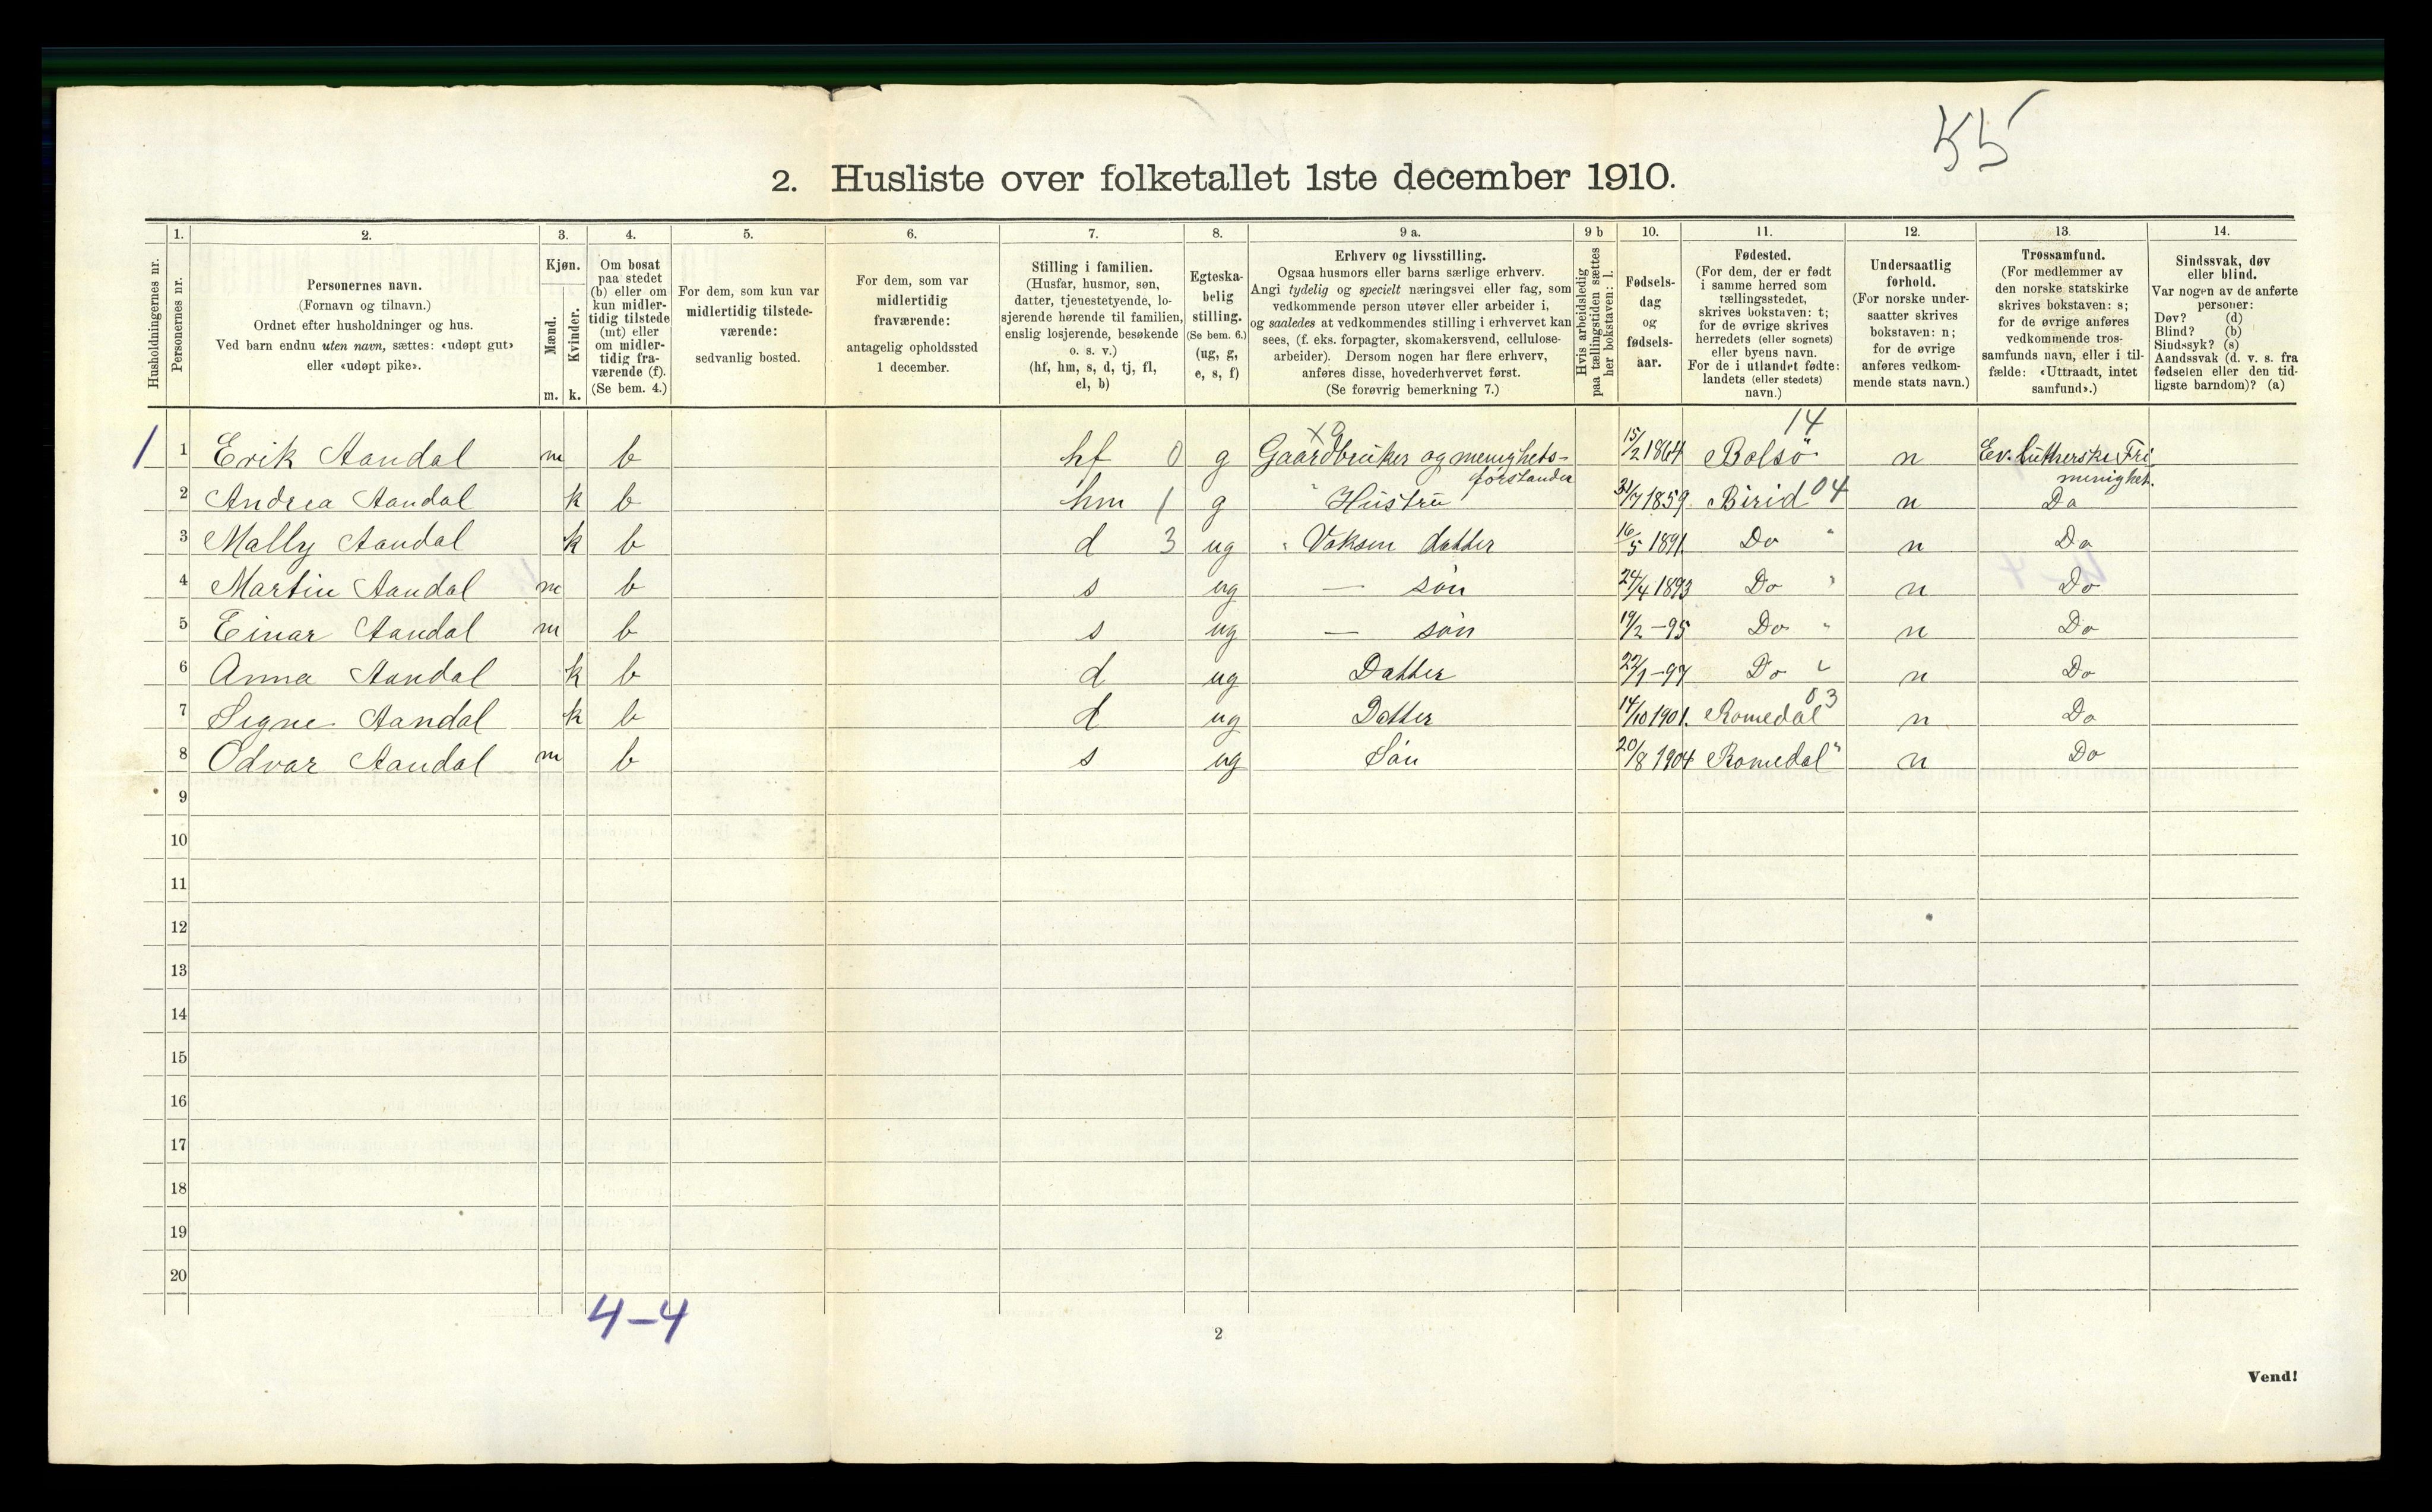 55
2. Husliste over folketallet 1ste december 1910.
Husholdningernes nr.
1.
Personernes nr.
2.
Personernes navn.
(Fornavn og tilnavn.)
Ordnet efter husholdninger og hus.
Ved barn endnu uten navn, sættes: «udøpt gut»
eller «udøpt pike».
3.
Kjøn.
Mænd.
Kvinder.
m. k.
4.
Om bosat
paa stedet
(b) eller om
kun midler-
tidig tilstede
(mt) eller
om midler-
tidig fra-
værende (f).
(Se bem. 4.)
5.
For dem, som kun var
midlertidig tilstede-
værende:
sedvanlig bosted.
6.
For dem, som var
midlertidig
fraværende:
antagelig opholdssted
1 december.
7.
Stilling i familien.
(Husfar, husmor, søn,
datter, tjenestetyende, lo-
sjerende hørende til familien,
enslig losjerende, besøkende
o. s. v.)
(hf, hm, s, d, tj, fl,
el, b)
8.
Egteska-
belig
stilling.
(Se bem. 6.)
(ug, g,
e, s, f)
9 a.
Erhverv og livsstilling.
Ogsaa husmors eller barns særlige erhverv.
Angi tydelig og specielt næringsvei eller fag, som
vedkommende person utøver eller arbeider i,
og saaledes at vedkommendes stilling i erhvervet kan
sees, (f. eks. forpagter, skomakersvend, cellulose-
arbeider). Dersom nogen har flere erhverv,
anføres disse, hovederhvervet først.
(Se forøvrig bemerkning 7.)
9 b
Hvis arbeidsledig
paa tællingstiden sættes
her bokstaven: l.
10.
Fødsels-
dag
og
fødsels-
aar.
11.
Fødested.
(For dem, der er født
i samme herred som
tællingsstedet,
skrives bokstaven: t;
for de øvrige skrives
herredets (eller sognets)
eller byens navn.
For de i utlandet fødte:
landets (eller stedets)
navn.)
12.
Undersaatlig
forhold.
(For norske under-
saatter skrives
bokstaven: n;
for de øvrige
anføres vedkom-
mende stats navn.)
13.
Trossamfund.
(For medlemmer av
den norske statskirke
skrives bokstaven: s;
for de øvrige anføres
vedkommende tros-
samfunds navn, eller i til-
fælde: «Uttraadt, intet
samfund».)
14.
Sindssvak, døv
eller blind.
Var nogen av de anførte
personer:
Døv? (d)
Blind? (b)
Sindssyk? (s)
Aandssvak (d. v. s. fra
fødselen eller den tid-
ligste barndom)? (a)
x9 14
1 1 Erik Aandal m b hf 0 g Gaardbruker og menighets- 15/2 1864 Bolsö n Ev. Lutherske Fri
forstander menighet.
2 Andrea Aandal k b hm 1 g " Hustru 31/7 1859 Birid 04 n Do
3 Mally Aandal k b d 3 ug " Voksen datter 16/5 1891. Do " n Do
4 Martin Aandal m b s ug — søn 24/4 1893 Do " n Do
5 Einar Aandal m b s ug — søn 19/2 -95 Do " n Do
6 Anna Aandal k b d ug Datter 22/1 -97 Do " n Do
7 Signe Aandal k b d ug Datter 14/10 1901. Romedal 03 n Do
8 Odvar Aandal m b s ug Søn 20/8 1904 Romedal " n Do
9
10
11
12
13
14
15
16
17
18
19
20
4-4
2
Vend!